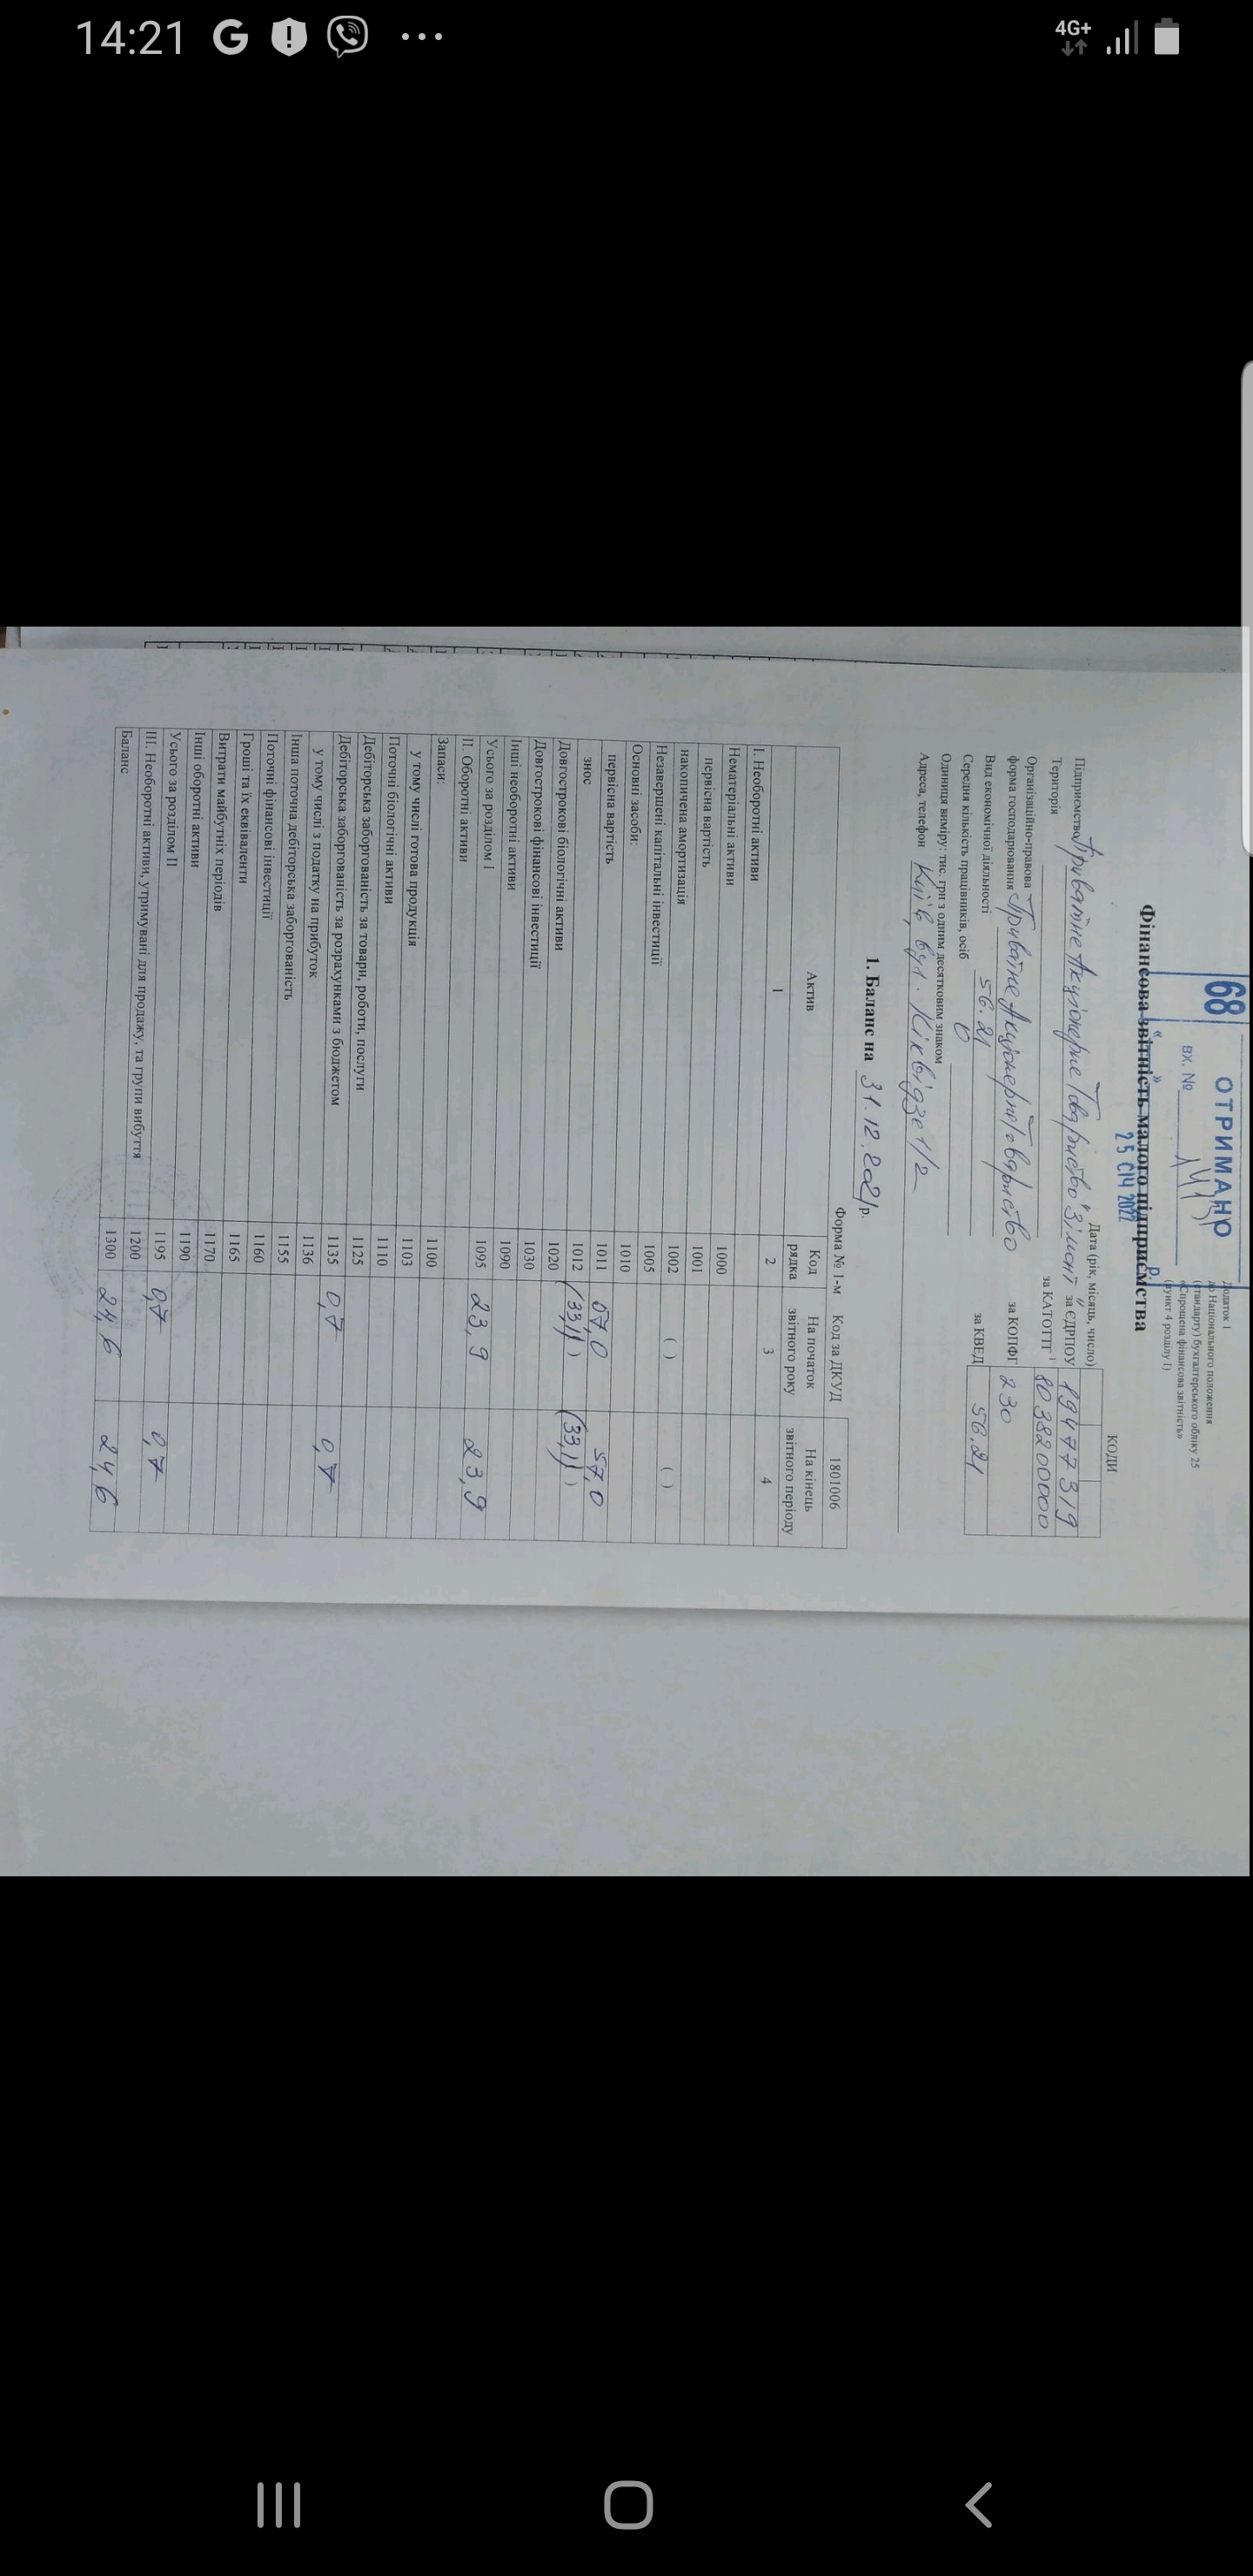 14:21
4G+
68
ОТРИМАНО
ВХ. №
« » р.
25 СІЧ 2022
Додаток 1
до Національного положення
(стандарту) бухгалтерського обліку 25
«Спрощена фінансова звітність»
(пункт 4 розділу I)
Фінансова звітність малого підприємства
КОДИ
Дата (рік, місяць, число)
Підприємство Приватне Акціонерне Товариство "Зімонт" за ЄДРПОУ 19477319
Територія за КАТОТТГ 1 8038200000
Організаційно-правова
форма господарювання Приватне Акціонерне Товариство за КОПФГ 230
Вид економічної діяльності 56.21 за КВЕД 56.21
Середня кількість працівників, осіб 0
Одиниця виміру: тис. грн з одним десятковим знаком
Адреса, телефон Київ, вул. Кіквідзе 1/2
1. Баланс на 31.12.2021 р.
Форма № 1-м Код за ДКУД 1801006
Актив Код рядка На початок звітного року На кінець звітного періоду
1 2 3 4
I. Необоротні активи
Нематеріальні активи 1000
первісна вартість 1001
накопичена амортизація 1002 ( ) ( )
Незавершені капітальні інвестиції 1005
Основні засоби: 1010
первісна вартість 1011 57,0 57,0
знос 1012 (33,1) (33,1)
Довгострокові біологічні активи 1020
Довгострокові фінансові інвестиції 1030
Інші необоротні активи 1090
Усього за розділом I 1095 23,9 23,9
II. Оборотні активи
Запаси: 1100
у тому числі готова продукція 1103
Поточні біологічні активи 1110
Дебіторська заборгованість за товари, роботи, послуги 1125
Дебіторська заборгованість за розрахунками з бюджетом 1135 0,7 0,7
у тому числі з податку на прибуток 1136
Інша поточна дебіторська заборгованість 1155
Поточні фінансові інвестиції 1160
Гроші та їх еквіваленти 1165
Витрати майбутніх періодів 1170
Інші оборотні активи 1190
Усього за розділом II 1195 0,7 0,7
III. Необоротні активи, утримувані для продажу, та групи вибуття 1200
Баланс 1300 24,6 24,6